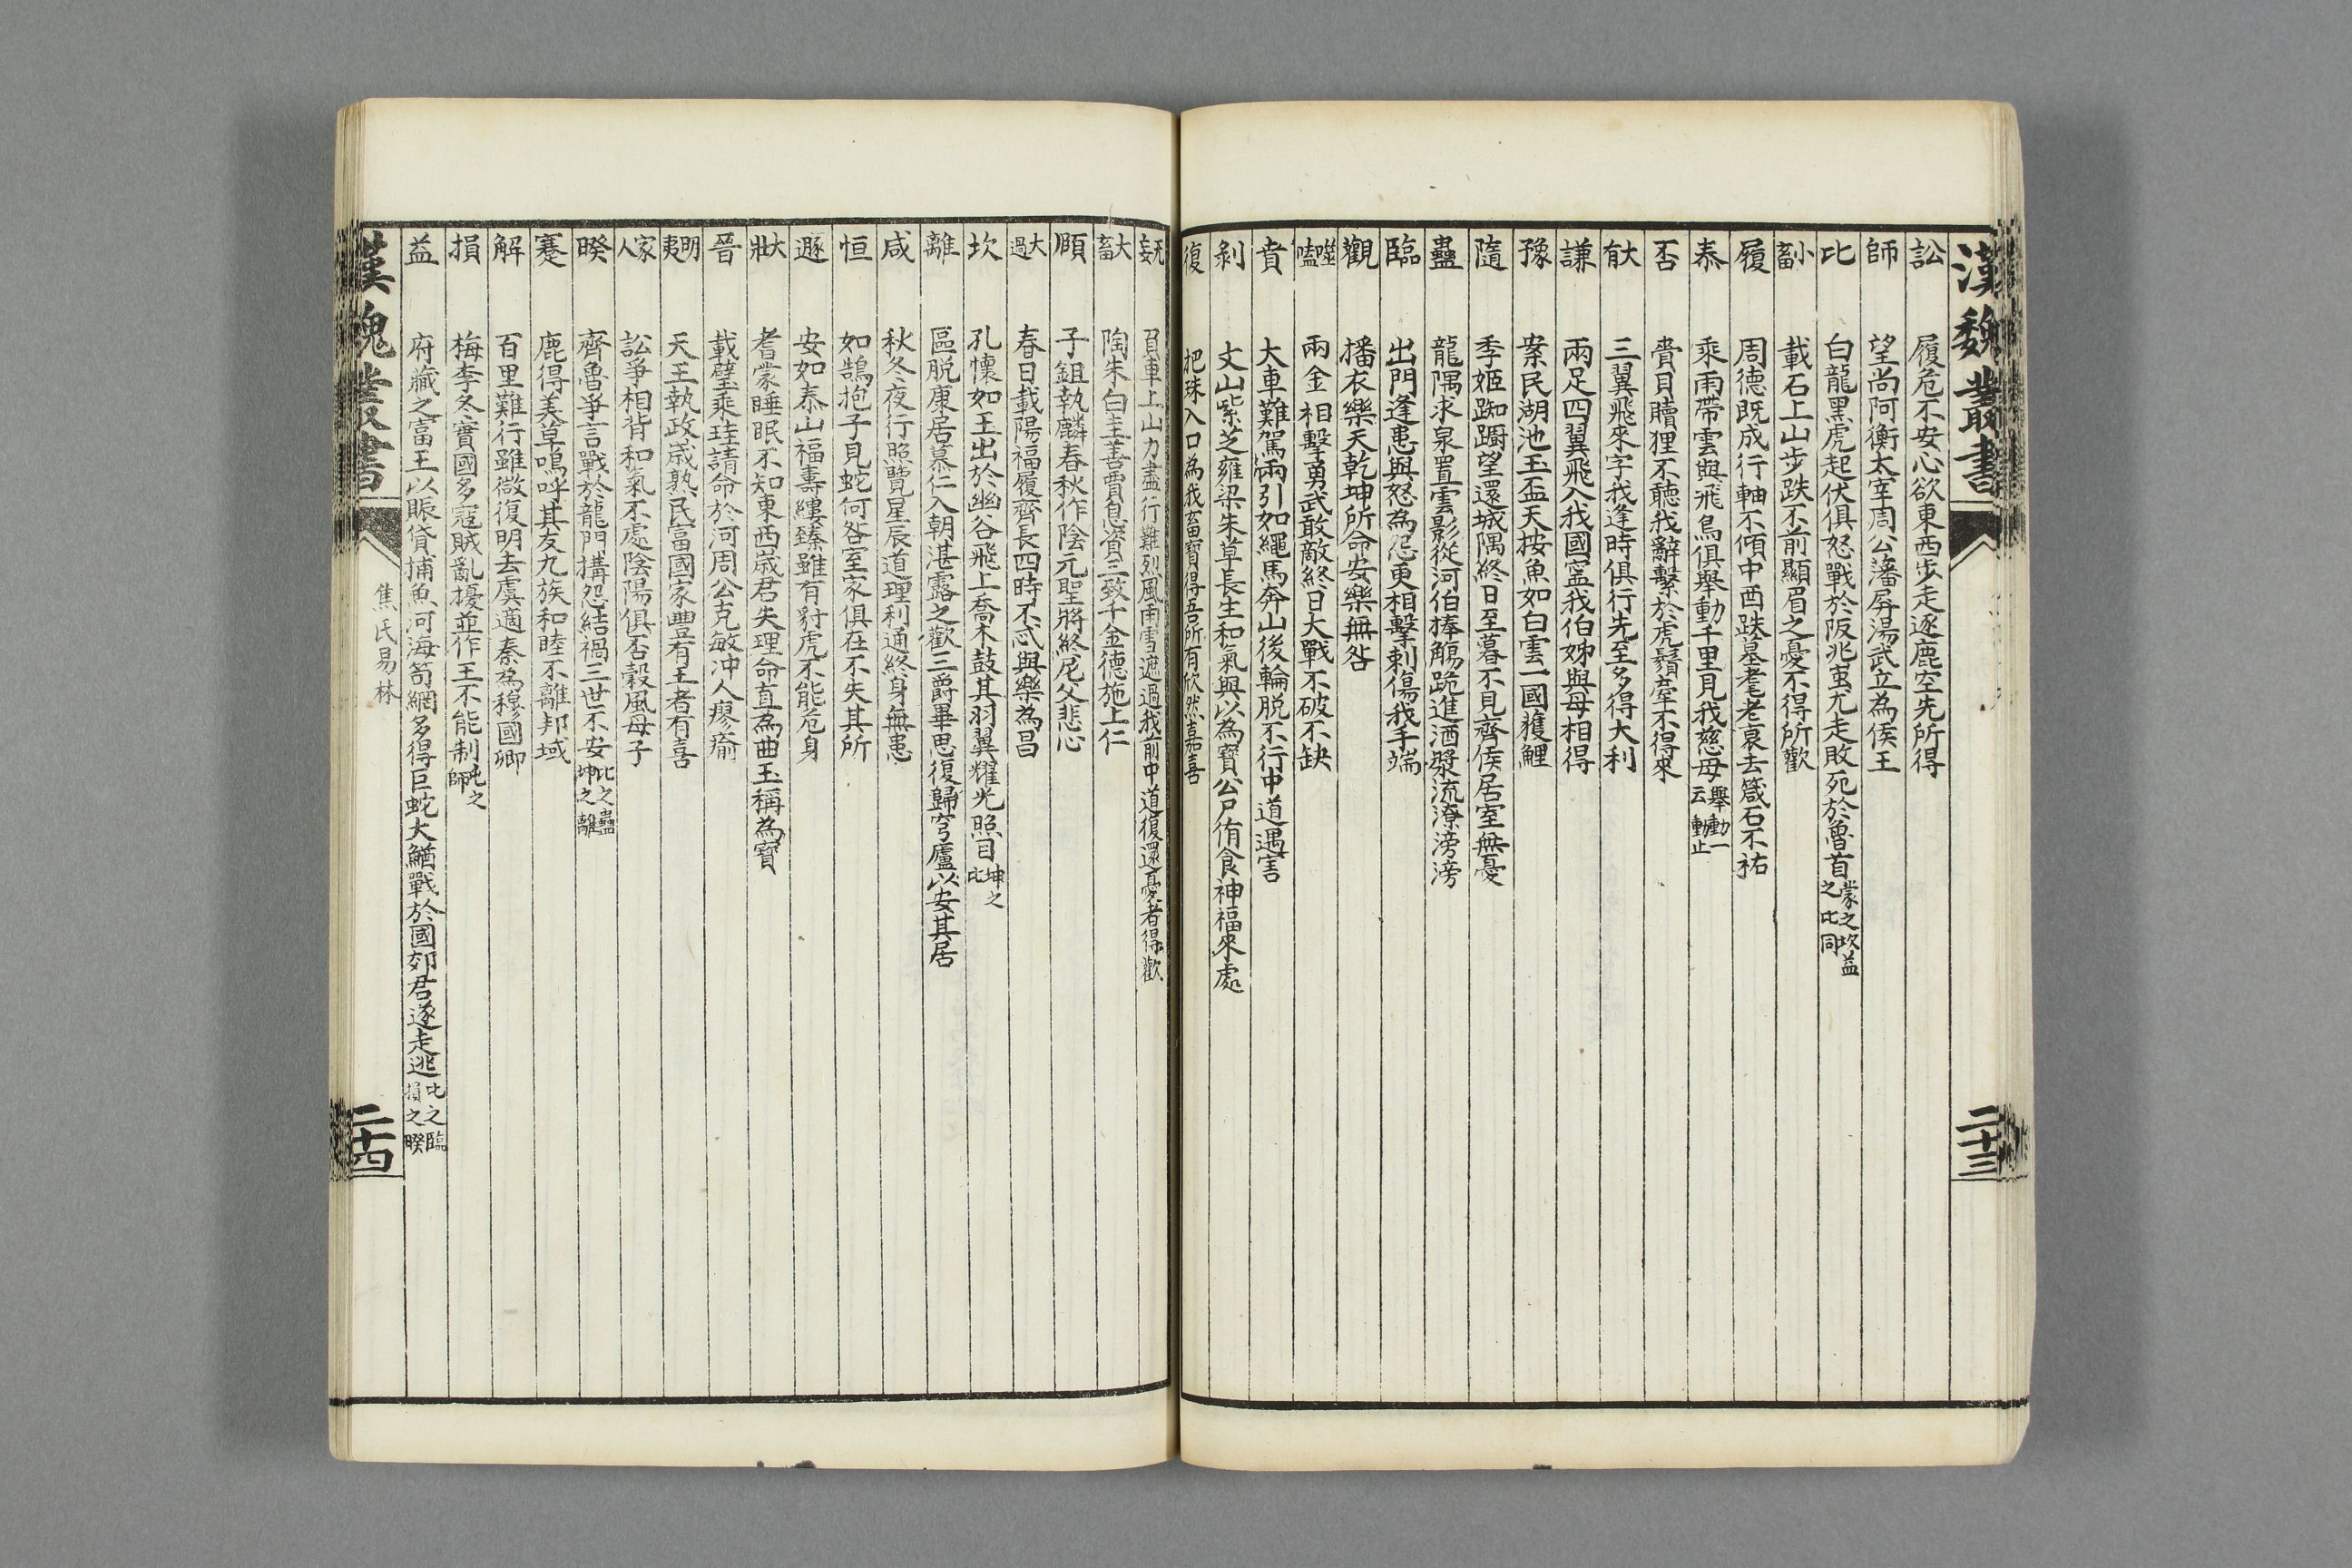 漢魏叢書
二十三
訟 履危不安心欲東西步走逐鹿空先所得
師 望尚阿衡太宰周公藩屏湯武立為侯王
比 白龍黑虎起伏俱怒戰於阪兆蚩尤走敗死於魯首蒙之坎益之比同
小畜 載石上山步跌不前顯眉之憂不得所歡
履 周德既成行軸不傾中酉跌墓耄老衰去箴石不祐
泰 乘雨帶雲與飛鳥俱舉動千里見我慈母舉動一云動止
否 賷貝贖狸不聽我辭繫於虎鬚牽不得來
大有 三翼飛來字我逢時俱行先至多得大利
謙 兩足四翼飛入我國寍我伯姊與母相得
豫 案民湖池玉盃天按魚如白雲一國獲鯉
隨 季姬踟躕望還城隅終日至暮不見齊侯居室無憂
蠱 龍隅求泉置雲影從河伯捧觴跪進酒漿流潦滂滂
臨 出門逢患與怒為怨更相擊刺傷我手端
觀 播衣樂天乾坤所命安樂無咎
噬嗑 兩金相擊勇武敢敵終日大戰不破不缺
賁 大車難駕兩引如繩馬奔山後輪脱不行中道遇害
剝 丈山紫芝雍梁朱草長生和氣與以為寶公尸侑食神福來處
復 把珠入口為我畜寶得吾所有欣然嘉喜
无妄 負車上山力盡行難烈風雨雪遮過我前中道復還憂者得歡
大畜 陶朱白圭善賈息資三致千金德施上仁
頤 子鉏執麟春秋作陰元聖將終尼父悲心
大過 春日載陽福履齊長四時不忒與樂為昌
坎 孔懷如玉出於幽谷飛上喬木鼓其羽翼耀光照目坤之比
離 區脱康居慕仁入朝湛露之歡三爵畢思復歸穹廬以安其居
咸 秋冬夜行照覽星辰道理利通終身無患
恒 如鵠抱子見蛇何咎室家俱在不失其所
遯 安如泰山福壽縷臻雖有豺虎不能危身
大壯 耆蒙睡眠不知東西歲君失理命直為曲玉稱為寶
晉 載璧乘珪請命於河周公克敏冲人瘳瘉
明夷 天王執政歲熟民富國家豐有王者有喜
家人 訟爭相背和氣不處陰陽俱否穀風母子
睽 齊魯爭言戰於龍門搆怨結禍三世不安比之蠱坤之離
蹇 鹿得美草鳴呼其友九族和睦不離邦域
解 百里難行雖微復明去虞適秦為穆國卿
損 梅李冬實國多寇賊亂擾並作王不能制屯之師
益 府藏之富王以賑貸捕魚河海笱網多得巨蛇大鰌戰於國郊君遂走逃比之臨損之睽
漢魏叢書
焦氏易林
二十四